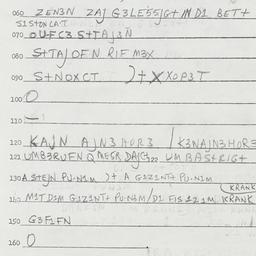 060 ZEN3N ZAJ G3LE55IG+ IN D1 BET+
S1S+ONLAT
070 OUFC3 S+TAJ3N
080 S+TAJ OFN RIF M3X
090 S+NOXCT )+ XXOP3T
100 O
110 —
120 KAJN AJN3HOR3 / K3NAJN3HOR3
121 UMB3RUFN Q MEGR DAJG22 UM BAS+RIG+
130 A STEJN PU·N1M )+ A G1Z1NT+ PU·N1M
140 M1T D1M G1Z1NT+ PU·N3M/D1 FIS 221M KRANK
KRANK
150 G3F1FN
160 O